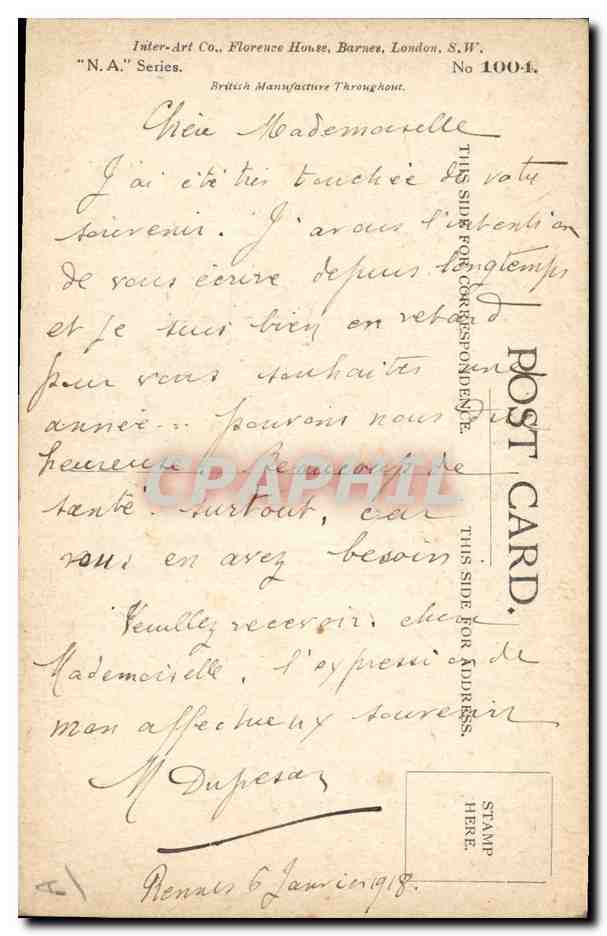 Inter-Art Co., Florence House, Barnes, London, S.W.
"N. A." Series. No 1004.
British Manufacture Throughout.
Chère Mademoiselle
J'ai été très touchée de votre
souvenir. J'avais l'intention
de vous écrire depuis longtemps
et je suis bien en retard
pour vous souhaiter une
année... pouvons nous dire
heureuse. Beaucoup de
santé surtout, car
vous en avez besoin.
Veuillez recevoir, chère
Mademoiselle, l'expression de
mon affectueux souvenir
M
Rennes 6 Janvier 1918.
THIS SIDE FOR CORRESPONDENCE.
THIS SIDE FOR ADDRESS.
POST CARD.
STAMP
HERE.
CPAPHIL
A